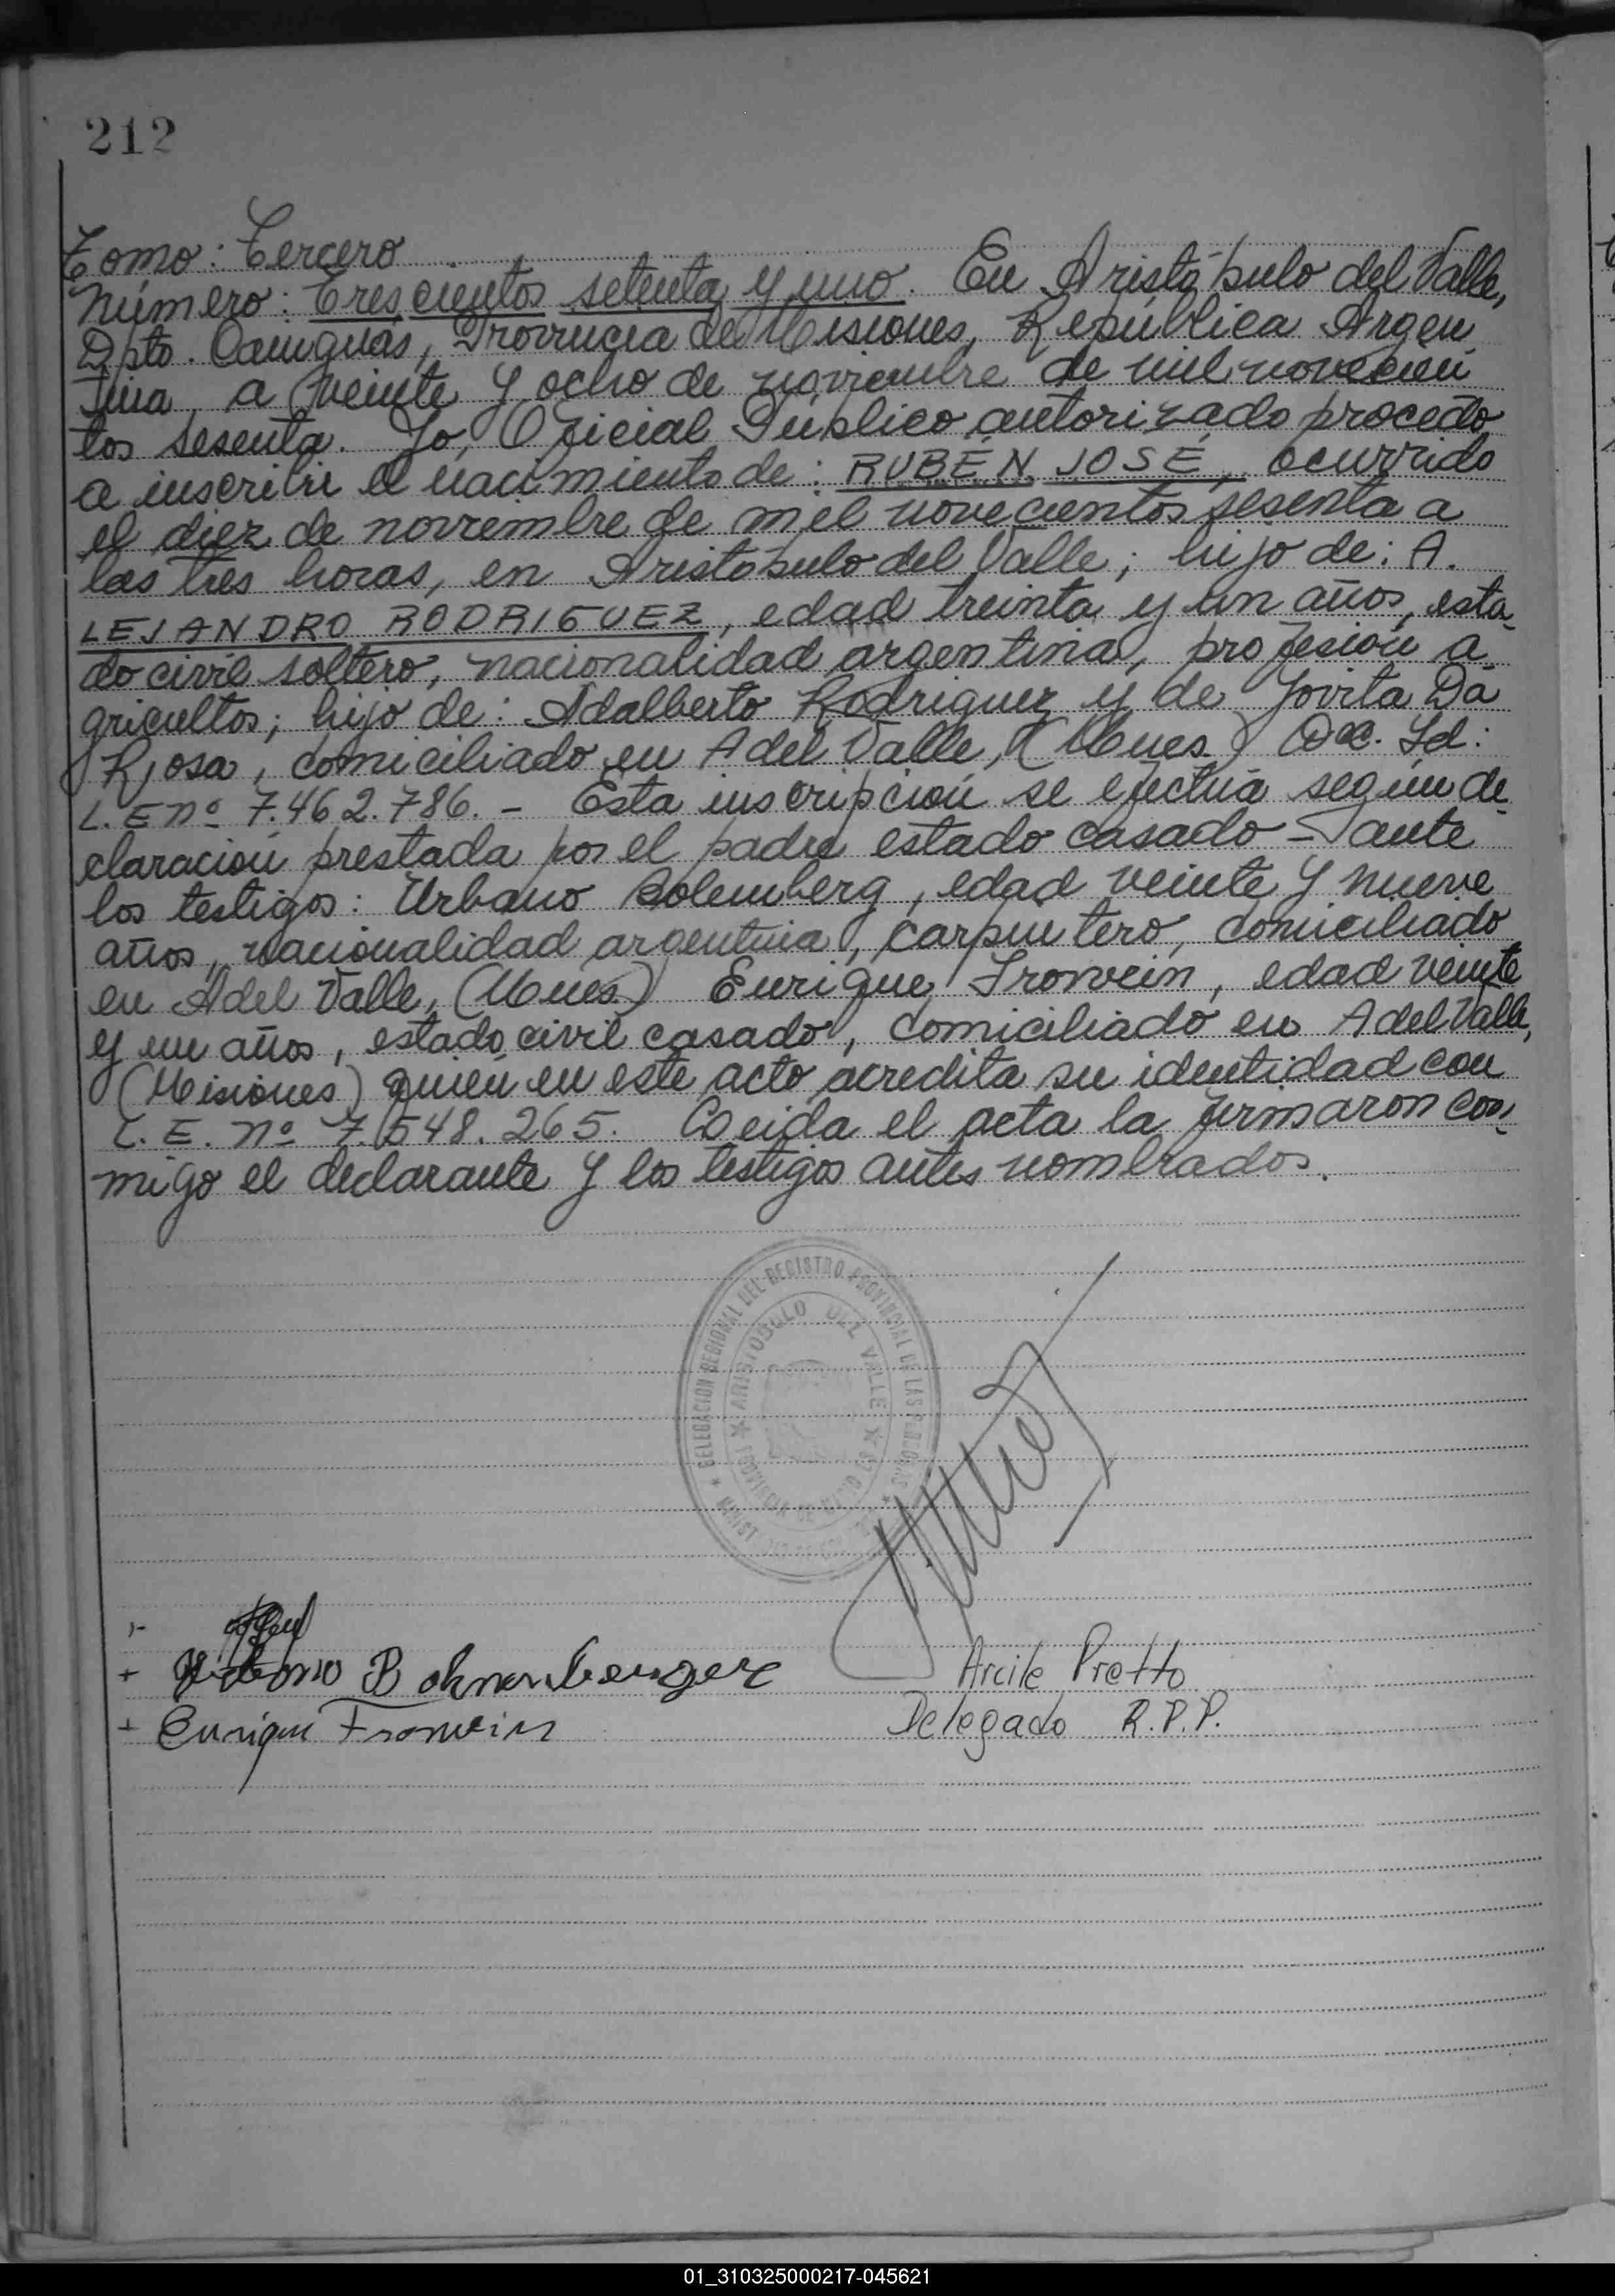 212
Tomo: Tercero
Número: Trescientos setenta y uno. En Aristóbulo del Valle,
Dpto. Cainguás, Provincia de Misiones, República Argen
tina, a veinte y ocho de noviembre de mil novecien
tos sesenta. Yo, Oficial Público autorizado procedo
a inscribir el nacimiento de: RUBÉN JOSÉ, ocurrido
el diez de noviembre de mil novecientos sesenta a
las tres horas, en Aristóbulo del Valle; hijo de: A.
LEJANDRO RODRIGUEZ, edad treinta y un años, esta
do civil soltero, nacionalidad argentina, profesión a
gricultor; hijo de: Adalberto Rodriguez y de Jovita Da
Rosa, domiciliado en A del Valle, (Mnes) Doc. Id:
L.E nº 7.462.786. - Esta inscripción se efectúa según de
claración prestada por el padre estado casado - ante
los testigos: Urbano edad veinte y nueve
años, nacionalidad argentina, carpintero, domiciliado
en A del Valle, (Mnes) Enrique Fronvein, edad veinte
y un años, estado civil casado, domiciliado en A del Valle,
(Misiones) quien en este acto acredita su identidad con
L. E. nº 7.548.265. Leida el acta la firmaron con
migo el declarante y los testigos antes nombrados.
DELEGACION REGIONAL DEL REGISTRO PROVINCIAL DE LAS PERSONAS
ARISTOBULO DEL VALLE
Arcile Pretto
Enrique Fronvein
Delegado R.P.P.
01_310325000217-045621